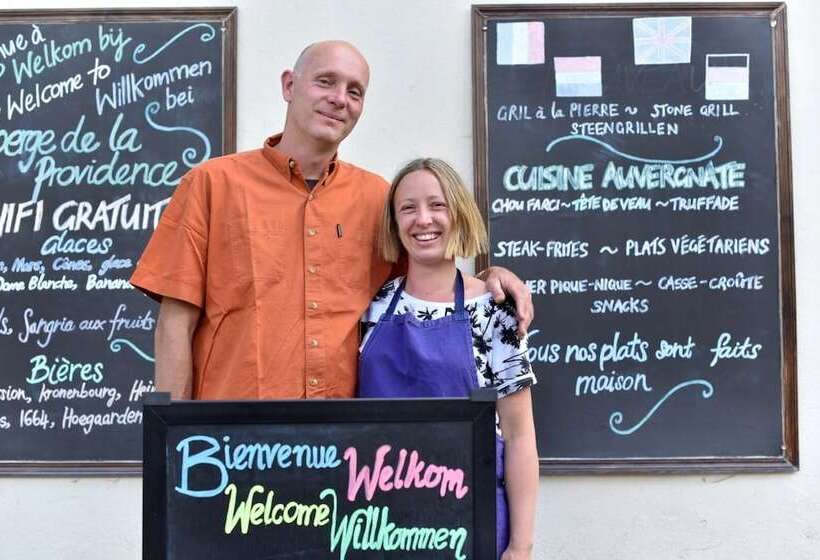 à
Welkom bij
Welcome to
Willkommen
bei
de la
Providence
GRATUIT
Glaces
Mars, Cônes, glace
Dame Blanche,
Sangria aux fruits
Bières
Kronenbourg,
1664, Hoegaarden
GRIL à la PIERRE ~ STONE GRILL
STEENGRILLEN
CUISINE AUVERGNATE
CHOU FARCI ~ TÊTE DE VEAU ~ TRUFFADE
STEAK-FRITES ~ PLATS VÉGÉTARIENS
PIQUE-NIQUE ~ CASSE-CROÛTE
SNACKS
nos plats sont faits
maison
Bienvenue Welkom
Welcome Willkommen